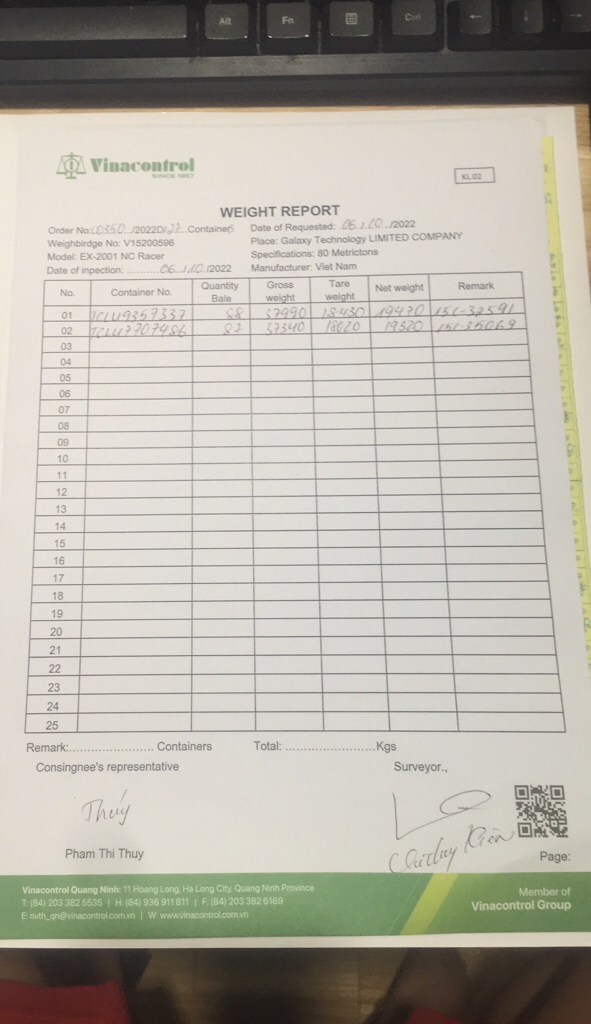 Alt
Fn
Ctrl
Vinacontrol
SINCE 1957
KL.02
WEIGHT REPORT
Order No: 0350 /2022D/ Containers
Date of Requested: 06 / 10 /2022
Weighbirdge No: V15200596
Place: Galaxy Technology LIMITED COMPANY
Model: EX-2001 NC Racer
Specifications: 80 Metrictons
Date of inpection: ............ 06 / 10 /2022
Manufacturer: Viet Nam
No. Container No. Quantity Bale Gross weight Tare weight Net weight Remark
01 TCLU9357337 68 37990 18430 19470 15C-32591
02 TCLU7707486 82 37340 18020 19320 15C-35069
03
04
05
06
07
08
09
10
11
12
13
14
15
16
17
18
19
20
21
22
23
24
25
Remark:...................... Containers Total: .......................Kgs
Consingnee's representative
Surveyor.,
Thúy
Pham Thi Thuy
Page:
Vinacontrol Quang Ninh: 11 Hoang Long, Ha Long City, Quang Ninh Province
T: (84) 203 382 5535 | H: (84) 936 911 811 | F: (84) 203 382 6169
E: nvth_qn@vinacontrol.com.vn | W: www.vinacontrol.com.vn
Member of
Vinacontrol Group